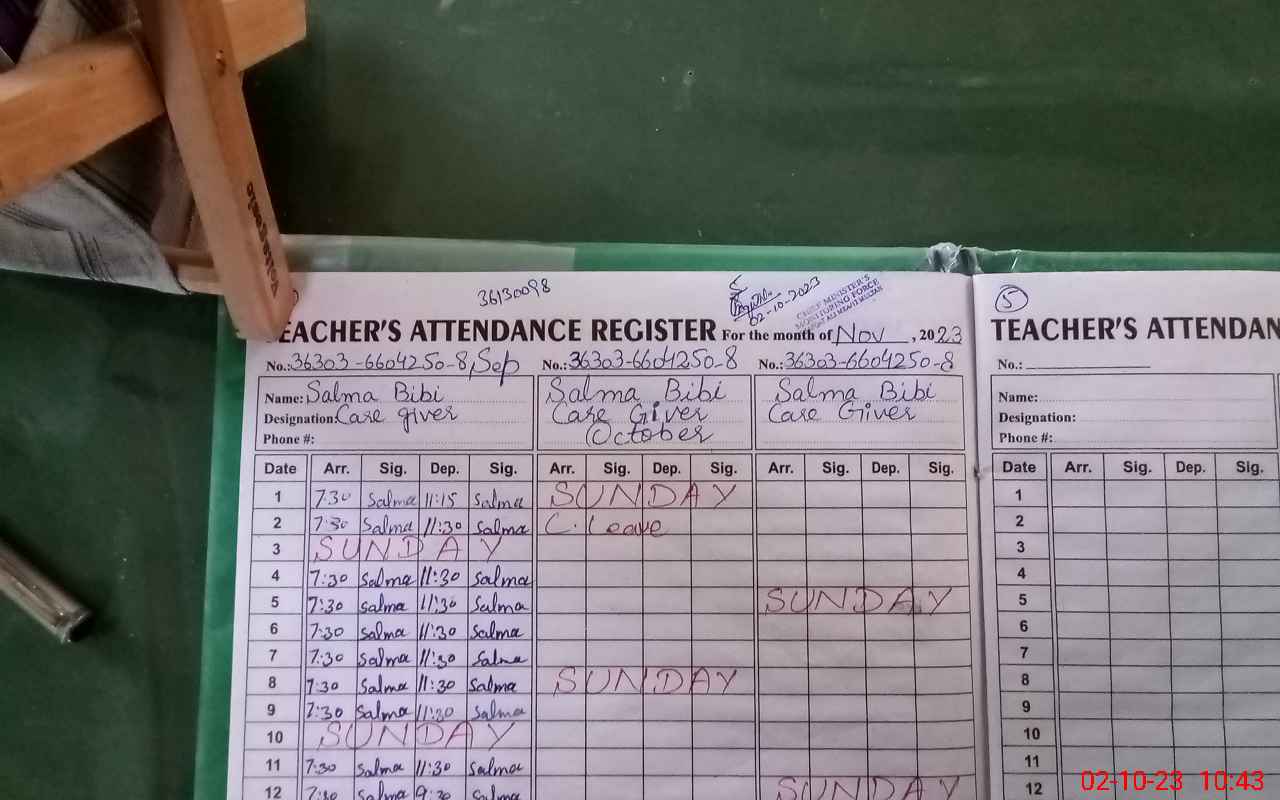 36130098
02-10-2023
CHIEF MINISTER'S
MONITORING FORCE
TEACHER'S ATTENDANCE REGISTER For the month of Nov, 2023
No.: 36303-6604250-8, Sep No.: 36303-6604250-8 No.: 36303-6604250-8
Name: Salma Bibi Salma Bibi Salma Bibi
Designation: Care giver Care Giver Care Giver
Phone #: October
Date Arr. Sig. Dep. Sig. Arr. Sig. Dep. Sig. Arr. Sig. Dep. Sig.
1 7:30 Salma 11:15 Salma SUNDAY
2 7:30 Salma 11:30 Salma C. Leave
3 SUNDAY
4 7:30 Salma 11:30 Salma
5 7:30 Salma 11:30 Salma SUNDAY
6 7:30 Salma 11:30 Salma
7 7:30 Salma 11:30 Salma
8 7:30 Salma 11:30 Salma SUNDAY
9 7:30 Salma 11:30 Salma
10 SUNDAY
11 7:30 Salma 11:30 Salma
12 7:30 Salma 9:30 Salma SUNDAY
5
TEACHER'S ATTENDAN
No.:
Name:
Designation:
Phone #:
Date Arr. Sig. Dep. Sig.
1
2
3
4
5
6
7
8
9
10
11
12
02-10-23 10:43